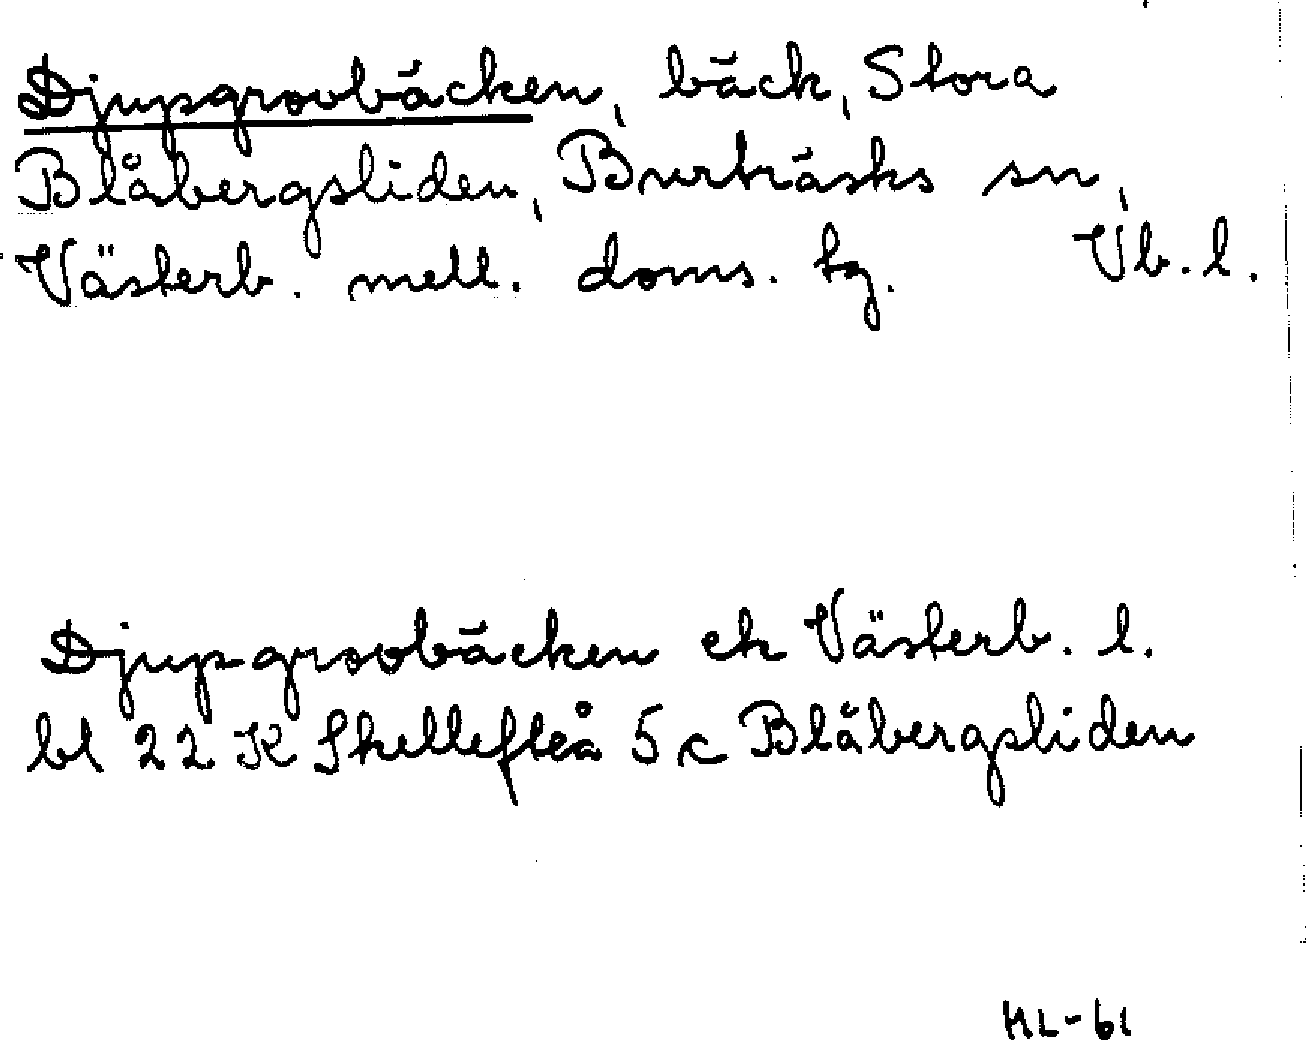 Djupgrovbäcken, bäck, Stora
Blåbergsliden, Burträsks sn,
Västerb. mell. doms. tg. Vb. l.
Djupgrovbäcken ek Västerb. l.
bl 22 K Skellefteå 5 c Blåbergsliden
HL-61